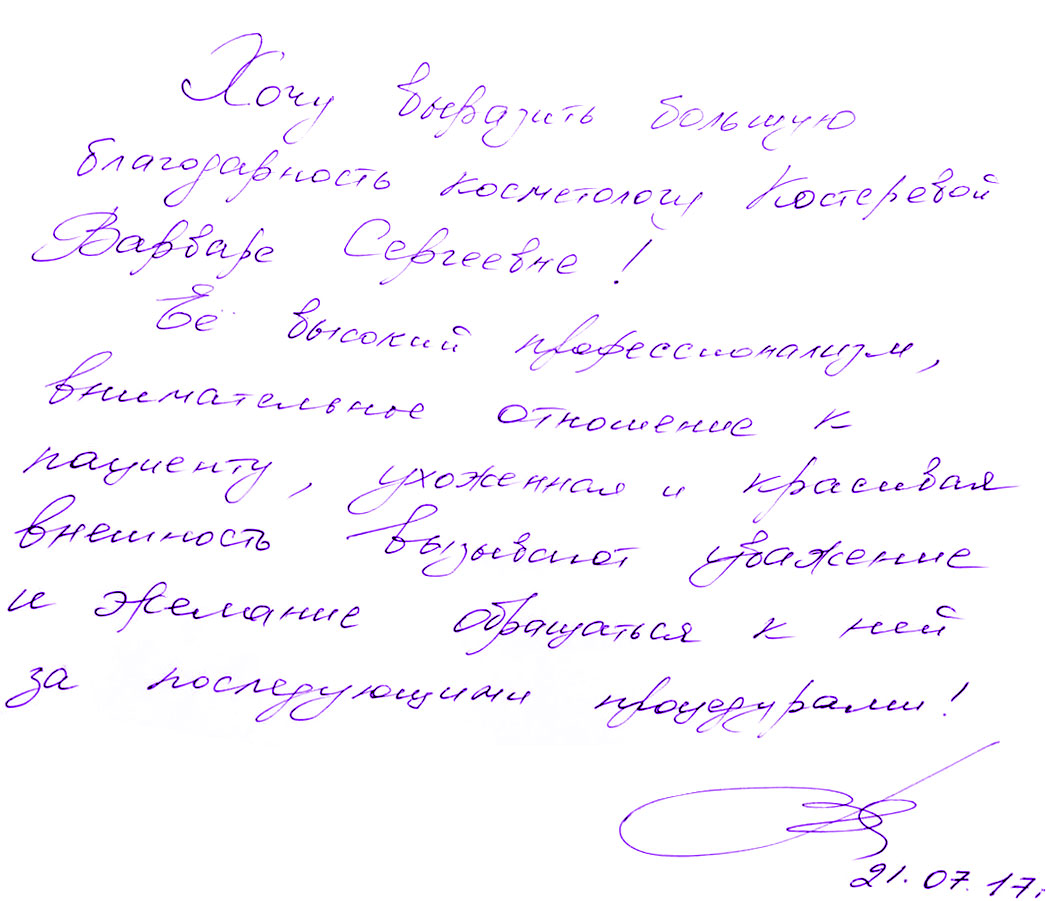 Хочу выразить большую
благодарность косметологу Костеревой
Варваре Сергеевне!
Её высокий профессионализм,
внимательное отношение к
пациенту, ухоженная и красивая
внешность вызывают уважение
и желание обращаться к ней
за последующими процедурами!
21.07.17г.